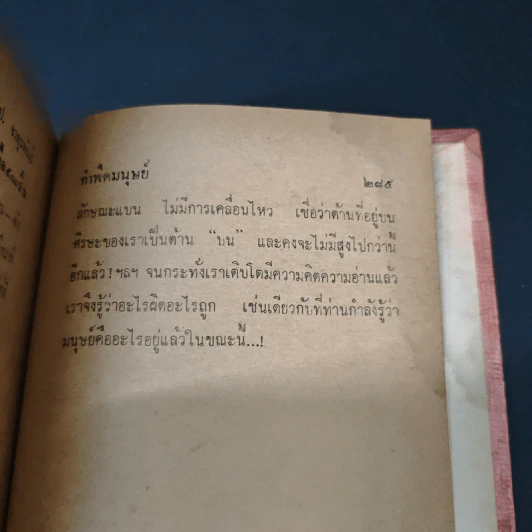 กำพืดมนุษย์ ๒๘๕
ลักษณะแบน ไม่มีการเคลื่อนไหว เชื่อว่าด้านที่อยู่บน
ศีรษะของเราเป็นด้าน “บน” และคงจะไม่มีสูงไปกว่านี้
อีกแล้ว ! ฯธฯ จนกระทั่งเราเติบโตมีความคิดความอ่านแล้ว
เราจึงรู้ว่าอะไรผิดอะไรถูก เช่นเดียวกับที่ท่านกำลังรู้ว่า
มนุษย์คืออะไรอยู่แล้วในขณะนี้...!